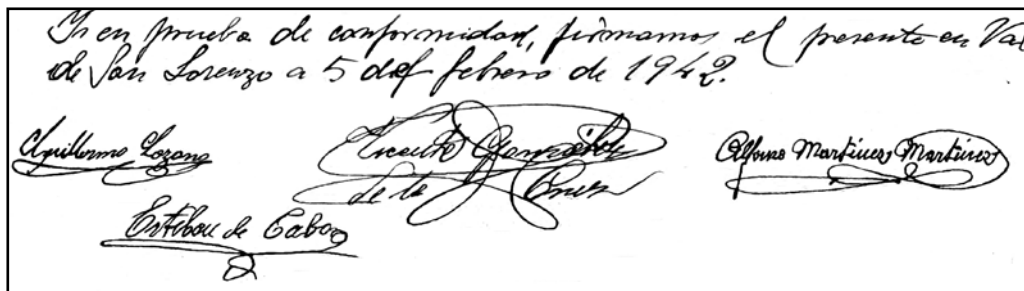 Y en prueba de conformidad, firmamos el presente en Val
de San Lorenzo a 5 de febrero de 1942.
Guillermo Lozano
Vicente González
de la Cruz
Alfonso Martínez Martínez
Esteban de Cabo